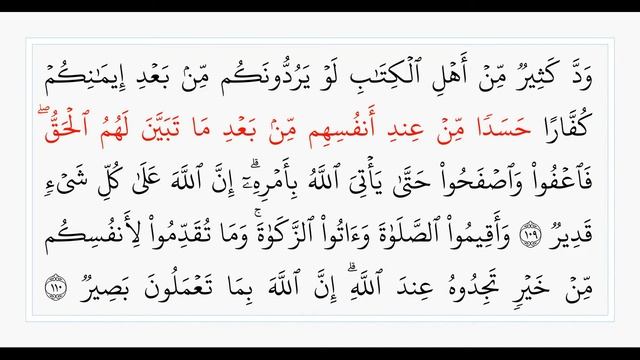 وَدَّ كَثِيرٌ مِّنْ أَهْلِ ٱلْكِتَـٰبِ لَوْ يَرُدُّونَكُم مِّنۢ بَعْدِ إِيمَـٰنِكُمْ
كُفَّارًا حَسَدًا مِّنْ عِندِ أَنفُسِهِم مِّنۢ بَعْدِ مَا تَبَيَّنَ لَهُمُ ٱلْحَقُّ ۖ
فَٱعْفُوا۟ وَٱصْفَحُوا۟ حَتَّىٰ يَأْتِىَ ٱللَّهُ بِأَمْرِهِۦٓ ۗ إِنَّ ٱللَّهَ عَلَىٰ كُلِّ شَىْءٍ
قَدِيرٌ ١٠٩ وَأَقِيمُوا۟ ٱلصَّلَوٰةَ وَءَاتُوا۟ ٱلزَّكَوٰةَ ۚ وَمَا تُقَدِّمُوا۟ لِأَنفُسِكُم
مِّنْ خَيْرٍ تَجِدُوهُ عِندَ ٱللَّهِ ۗ إِنَّ ٱللَّهَ بِمَا تَعْمَلُونَ بَصِيرٌ ١١٠